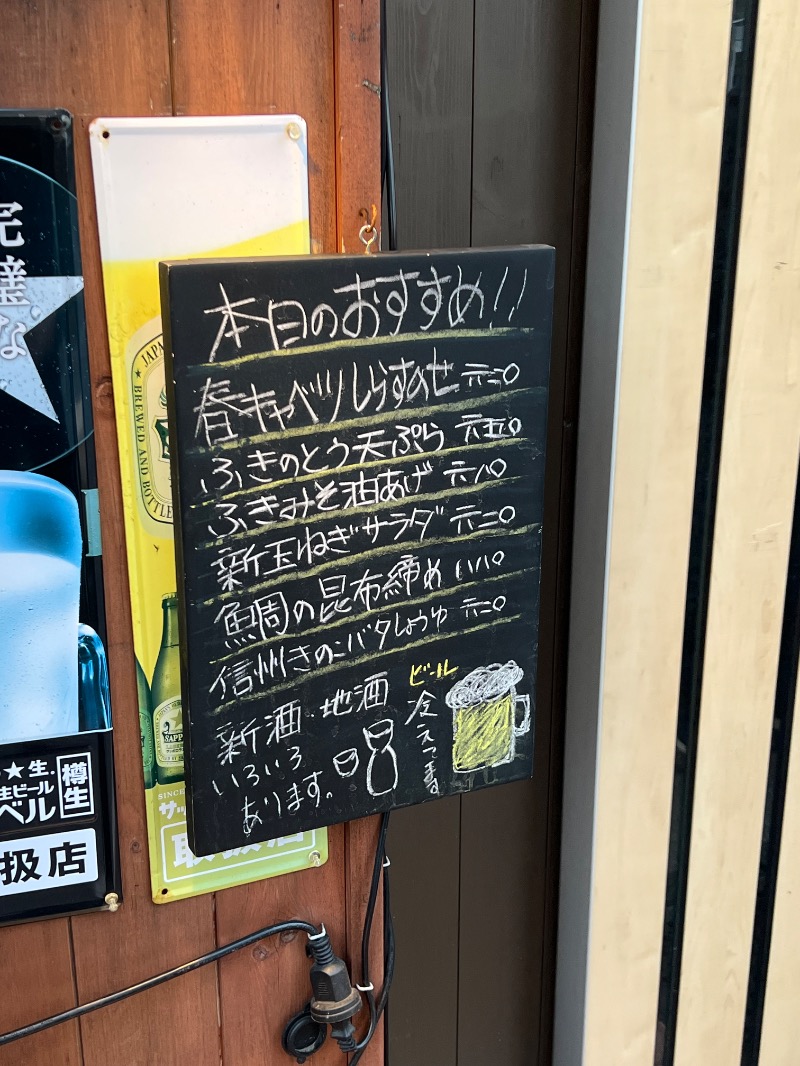 本日のおすすめ!!
春キャベツしらすのせ 六二〇
ふきのとう天ぷら 六五〇
ふきみそ油あげ 六八〇
新玉ねぎサラダ 六二〇
鯛の昆布締め 八八〇
信州きのこバタしょうゆ 六二〇
新酒・地酒
いろいろ
あります。
ビール
冷えてま
完璧な
★生.
生ビール
ベル
樽生
扱店
JAPAN
BREWED AND BOTTLE
SAPP
SINCE
サッ
取扱店